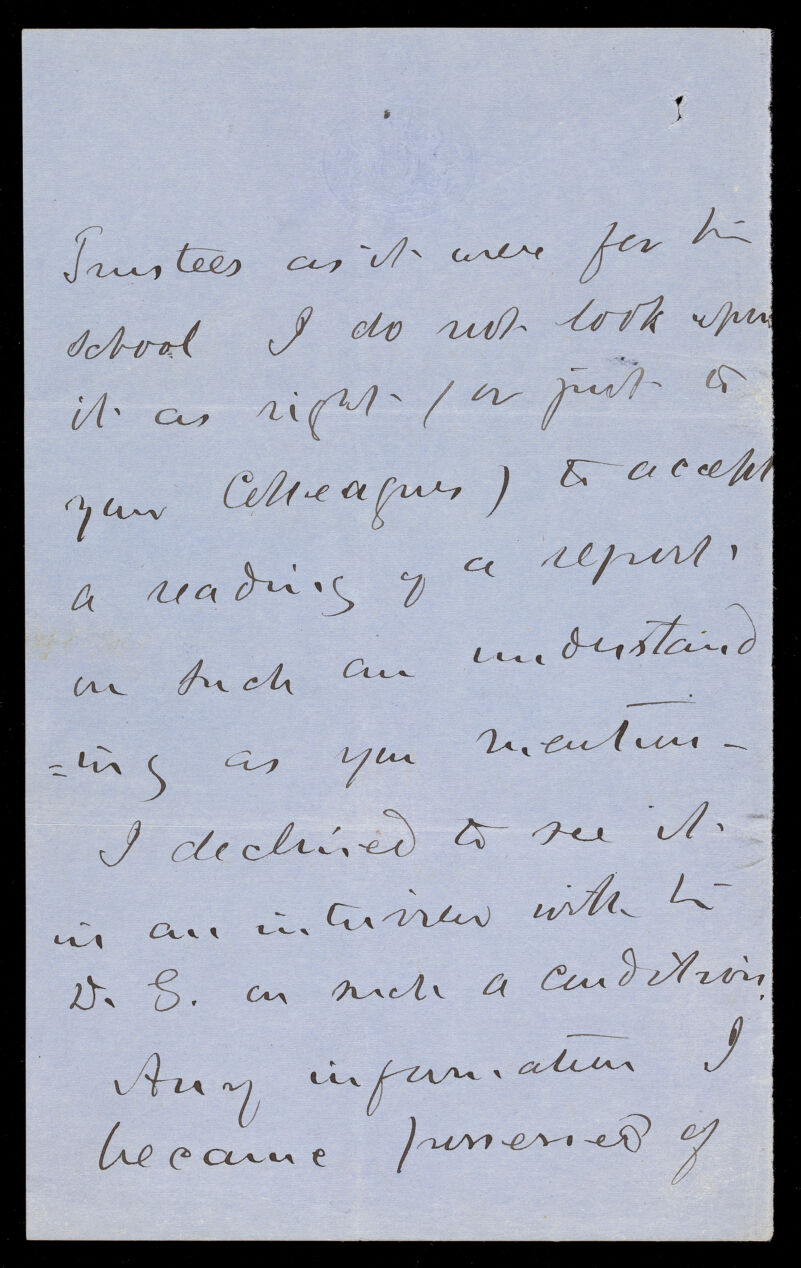 Trustees as it were for the
school I do not look upon
it as right (or just to
your Colleagues) to accept
a reading of a report
on such an understand
=ing as you mention -
I declined to see it
in an interview with the
D. G. on such a condition.
Any information I
became possessed of